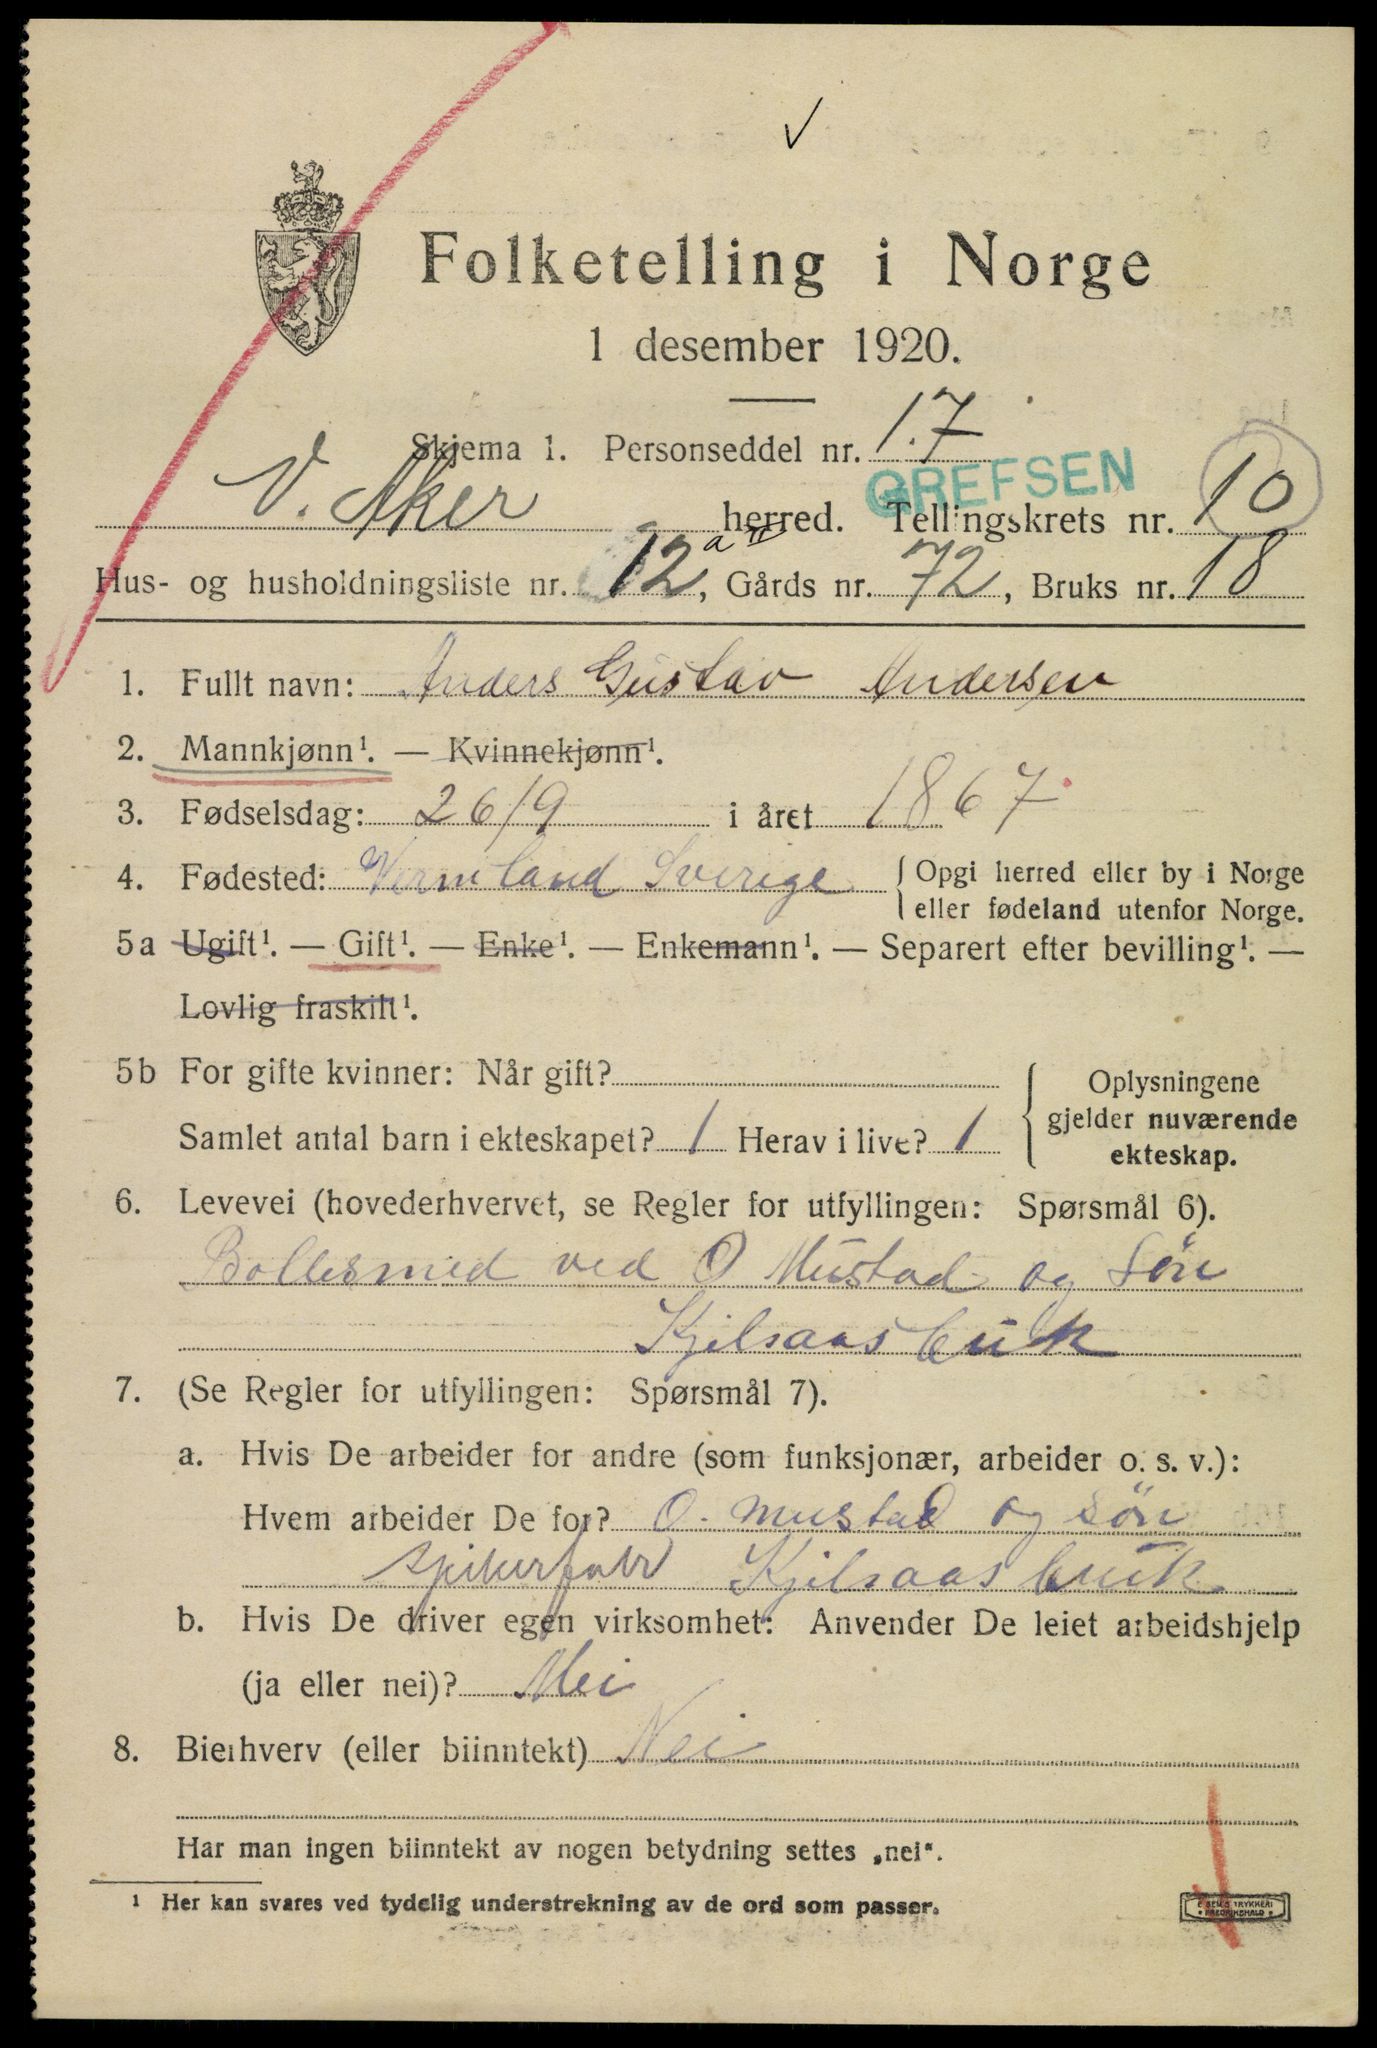 Folketelling i Norge
1 desember 1920.
Skjema 1. Personseddel nr. 17
V. Aker herred. GREFSEN Tellingskrets nr. 10
Hus- og husholdningsliste nr. 12a, Gårds nr. 72, Bruks nr. 18
1. Fullt navn: Anders Gustav Andersen
2. Mannkjønn¹. — Kvinnekjønn¹.
3. Fødselsdag: 26/9 i året 1867
4. Fødested: Vermland Sverige { Opgi herred eller by i Norge
eller fødeland utenfor Norge.
5a Ugift¹. — Gift¹. — Enke¹. — Enkemann¹. — Separert efter bevilling¹. —
Lovlig fraskilt¹.
5b For gifte kvinner: Når gift?
Samlet antal barn i ekteskapet? 1 Herav i live? 1
{ Oplysningene
gjelder nuværende
ekteskap.
6. Levevei (hovederhvervet, se Regler for utfyllingen: Spørsmål 6).
Boltesmed ved O Mustad og Søn
Kjelsaas bruk
7. (Se Regler for utfyllingen: Spørsmål 7).
a. Hvis De arbeider for andre (som funksjonær, arbeider o. s. v.):
Hvem arbeider De for? O. Mustad og søn
spikerfabr Kjelsaas bruk
b. Hvis De driver egen virksomhet: Anvender De leiet arbeidshjelp
(ja eller nei)? Nei
8. Bierhverv (eller biinntekt) Nei
Har man ingen biinntekt av nogen betydning settes „nei“.
¹ Her kan svares ved tydelig understrekning av de ord som passer.